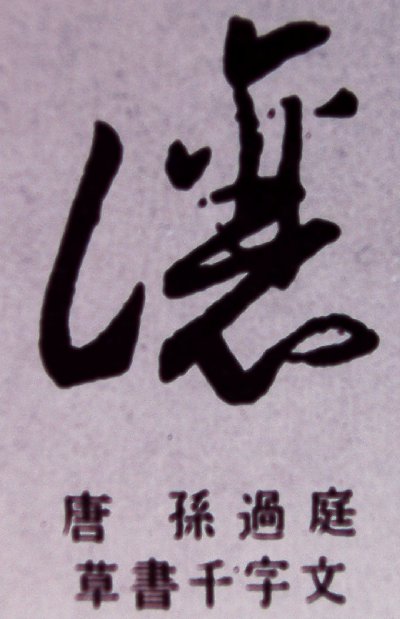 讓
唐 孫過庭
草書千字文